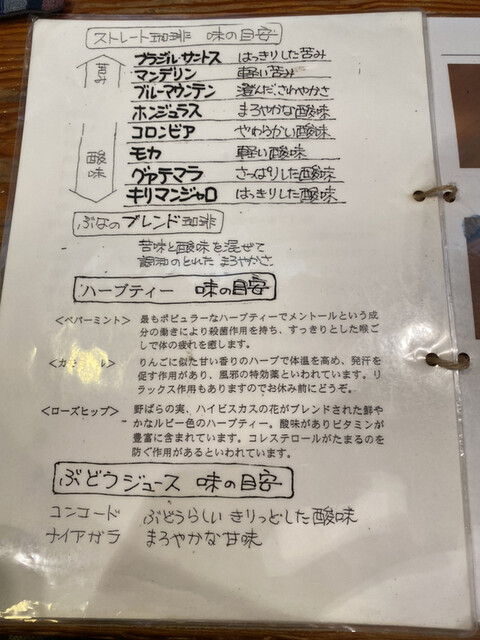 ストレート珈琲 味の目安
苦み
ブラジルサントス はっきりした苦み
マンデリン 軽い苦み
ブルーマウンテン 澄んださわやかさ
ホンジュラス まろやかな酸味
コロンビア やわらかい酸味
酸味
モカ 軽い酸味
グァテマラ さっぱりした酸味
キリマンジャロ はっきりした酸味
ぶなのブレンド珈琲
苦味と酸味を混ぜて
調和のとれた まろやかさ
ハーブティー 味の目安
<ペパーミント> 最もポピュラーなハーブティーでメントールという成
分の働きにより殺菌作用を持ち、すっきりとした喉ご
しで体の疲れを癒します。
<カモミール> りんごに似た甘い香りのハーブで体温を高め、発汗を
促す作用があり、風邪の特効薬といわれています。リ
ラックス作用もありますのでお休み前にどうぞ。
<ローズヒップ> 野ばらの実、ハイビスカスの花がブレンドされた鮮や
かなルビー色のハーブティー。酸味がありビタミンが
豊富に含まれています。コレステロールがたまるのを
防ぐ作用があるといわれています。
ぶどうジュース 味の目安
コンコード ぶどうらしい きりっとした酸味
ナイアガラ まろやかな甘味